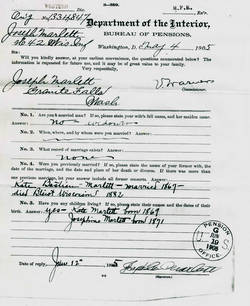 WESTERN
3—389.
Department of the Interior,
BUREAU OF PENSIONS,
Washington, D. C., May 4, 1905
Joseph Marlett
Will you kindly answer, at your earliest convenience, the questions enumerated below? The information is
requested for future use, and it may be of great value to your family.
Very respectfully,
Joseph Marlett
Granite Falls
Wash
Commissioner.
No. 1. Are you a married man? If so, please state your wife's full name, and her maiden name.
Answer: No
No. 2. When, where, and by whom were you married?
Answer:
No. 3. What record of marriage exists?
Answer: none
No. 4. Were you previously married? If so, please state the name of your former wife, the
date of the marriage, and the date and place of her death or divorce. If there was more than
one previous marriage, let your answer include all former consorts. Answer:
Kate Marlett - married 1867 -
died Wisconsin 1882
No. 5. Have you any children living? If so, please state their names and the dates of their
birth. Answer: yes - Kate Marlett born 1869
Josephine Marlett born 1871
Date of reply, June 12th, 1905
U.S. PENSION OFFICE
JUN 19 1905